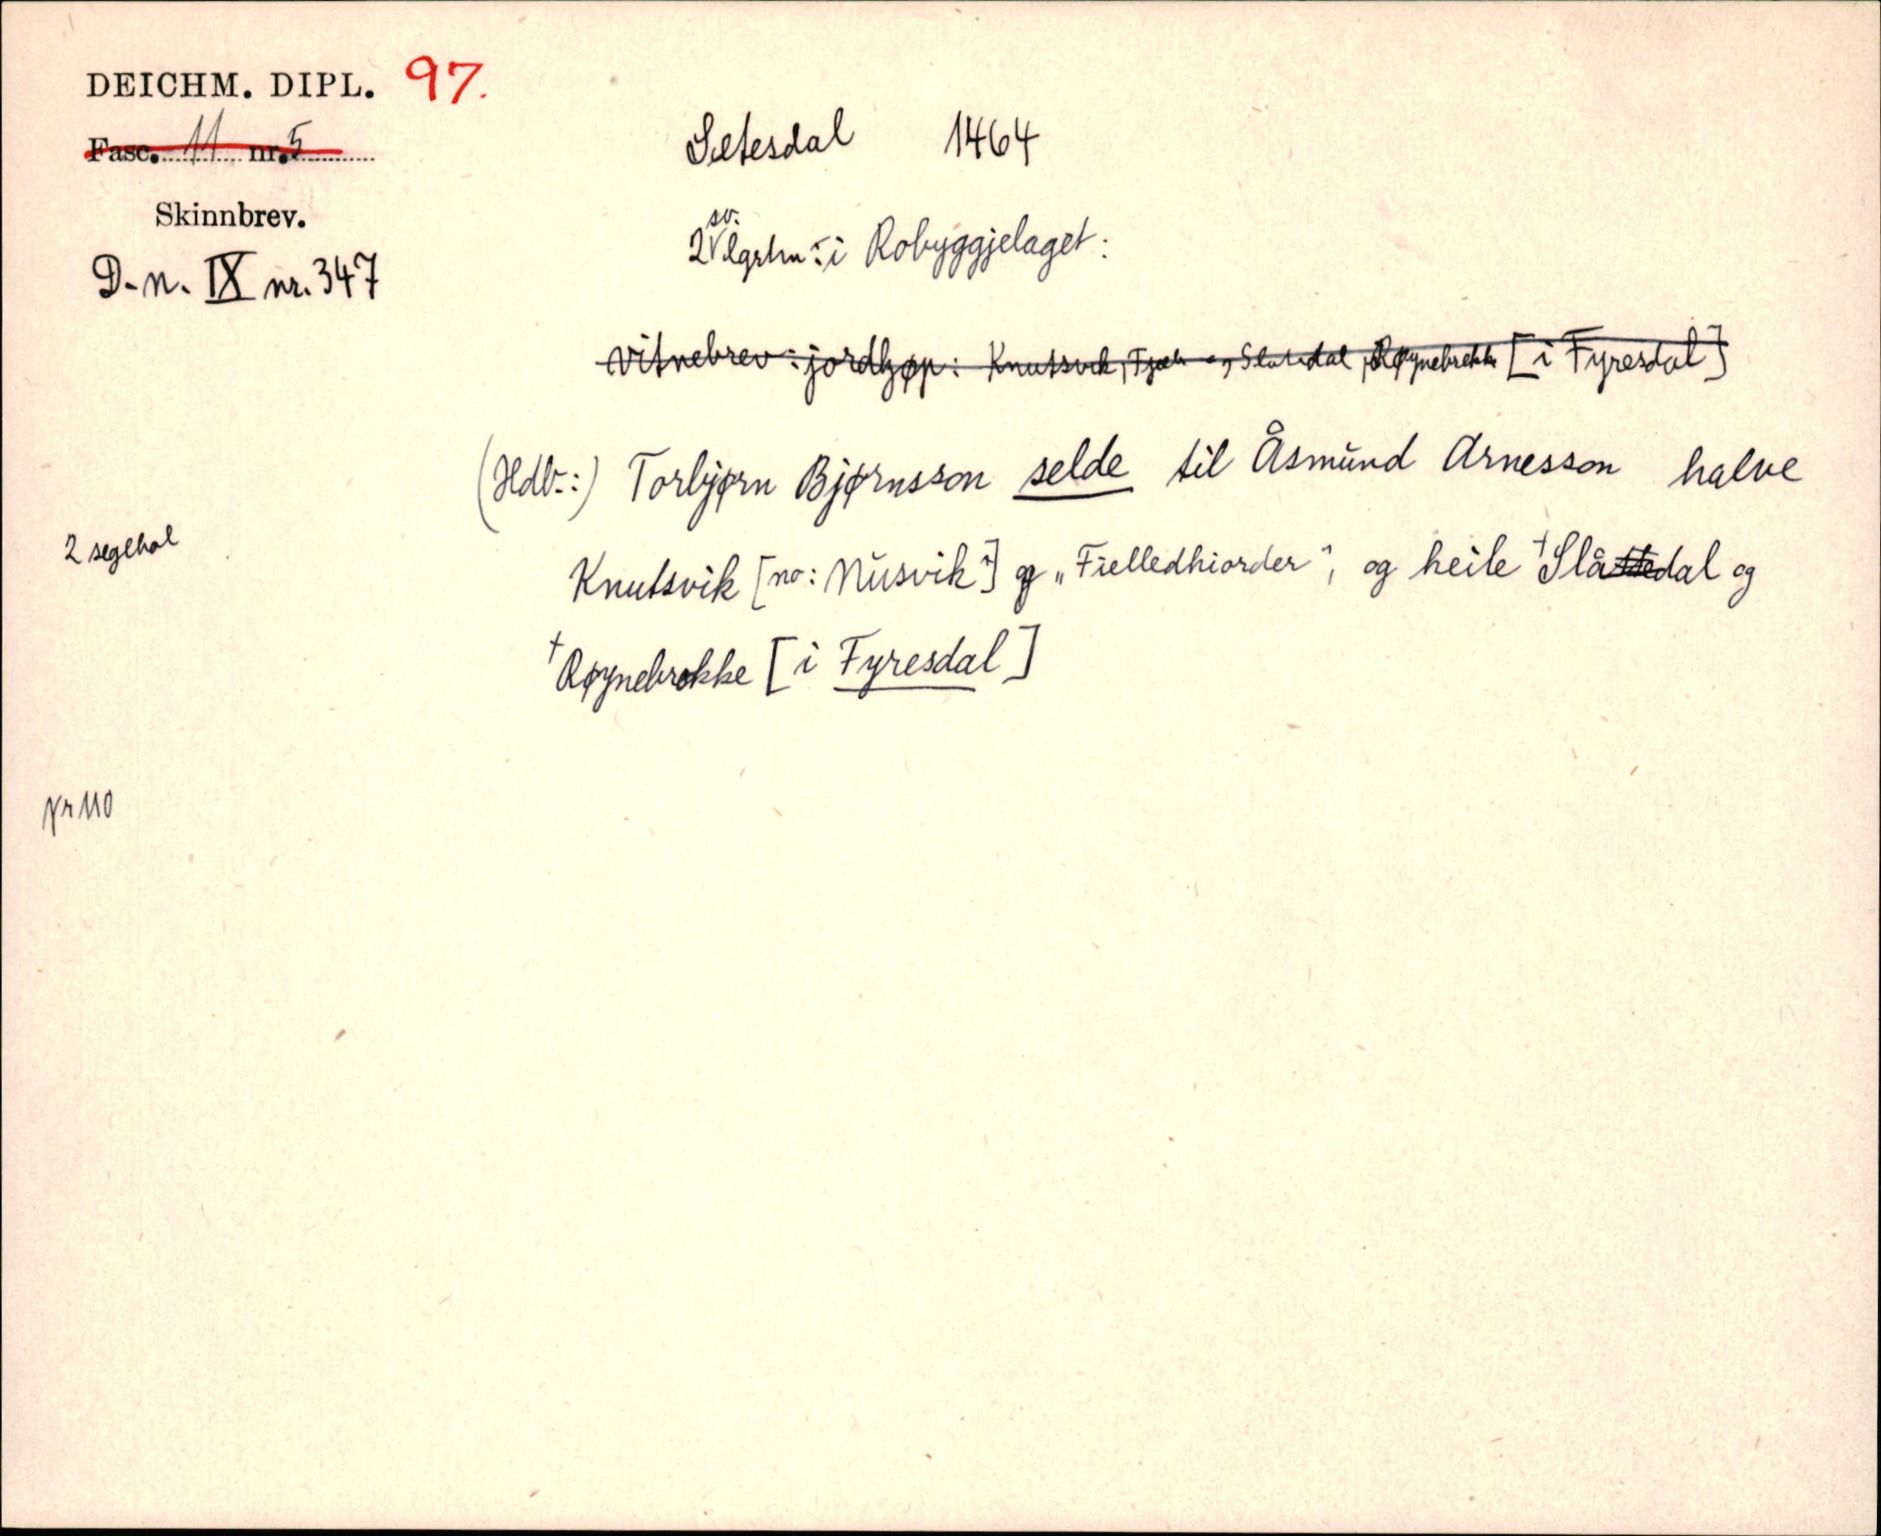 DEICHM. DIPL. 97.
Fasc. 11 nr. 5
Skinnbrev.
D.n. IX nr. 347
Setesdal 1464
sv.
2 lgrtm i Robyggjelaget:
Vitnebrev: jordkjøp: Knutsvik, Slåttedal, Røynebrekke [i Fyresdal]
(Hdb:) Torbjørn Bjørnsson selde til Åsmund Arnesson halve
2 seglhol
Knutsvik [no: Nusvik] og „Fielledhiorder", og heile †Slåttedal og
†Røynebrekke [i Fyresdal]
nr 110